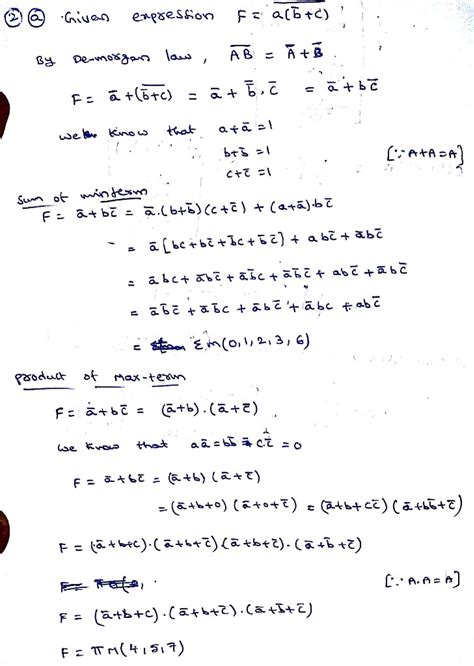 ② ⓐ Given expression F = \overline{a(b̄+c)}
By Demorgan law, \overline{AB} = Ā + B̄
F = ā + \overline{(b̄+c)} = ā + b̿.c̄ = ā + bc̄
we know that a+ā = 1
b+b̄ = 1 [∵ A+A = A]
c+c̄ = 1
Sum of minterm
F = ā + bc̄ = ā.(b+b̄)(c+c̄) + (a+ā).bc̄
= ā[bc + bc̄ + b̄c + b̄c̄] + abc̄ + ābc̄
= ābc + ābc̄ + āb̄c + āb̄c̄ + abc̄ + ābc̄
= āb̄c̄ + āb̄c + ābc̄ + ābc + abc̄
= Σm(0,1,2,3,6)
product of max-term
F = ā + bc̄ = (ā+b).(ā+c̄)
we know that aā = bb̄ = cc̄ = 0
F = ā + bc̄ = (ā+b)(ā+c̄)
= (ā+b+0)(ā+0+c̄) = (ā+b+cc̄)(ā+bb̄+c̄)
F = (ā+b+c).(ā+b+c̄)(ā+b+c̄).(ā+b̄+c̄)
[∵ A.A = A]
F = (ā+b+c).(ā+b+c̄).(ā+b̄+c̄)
F = πM(4,5,7)